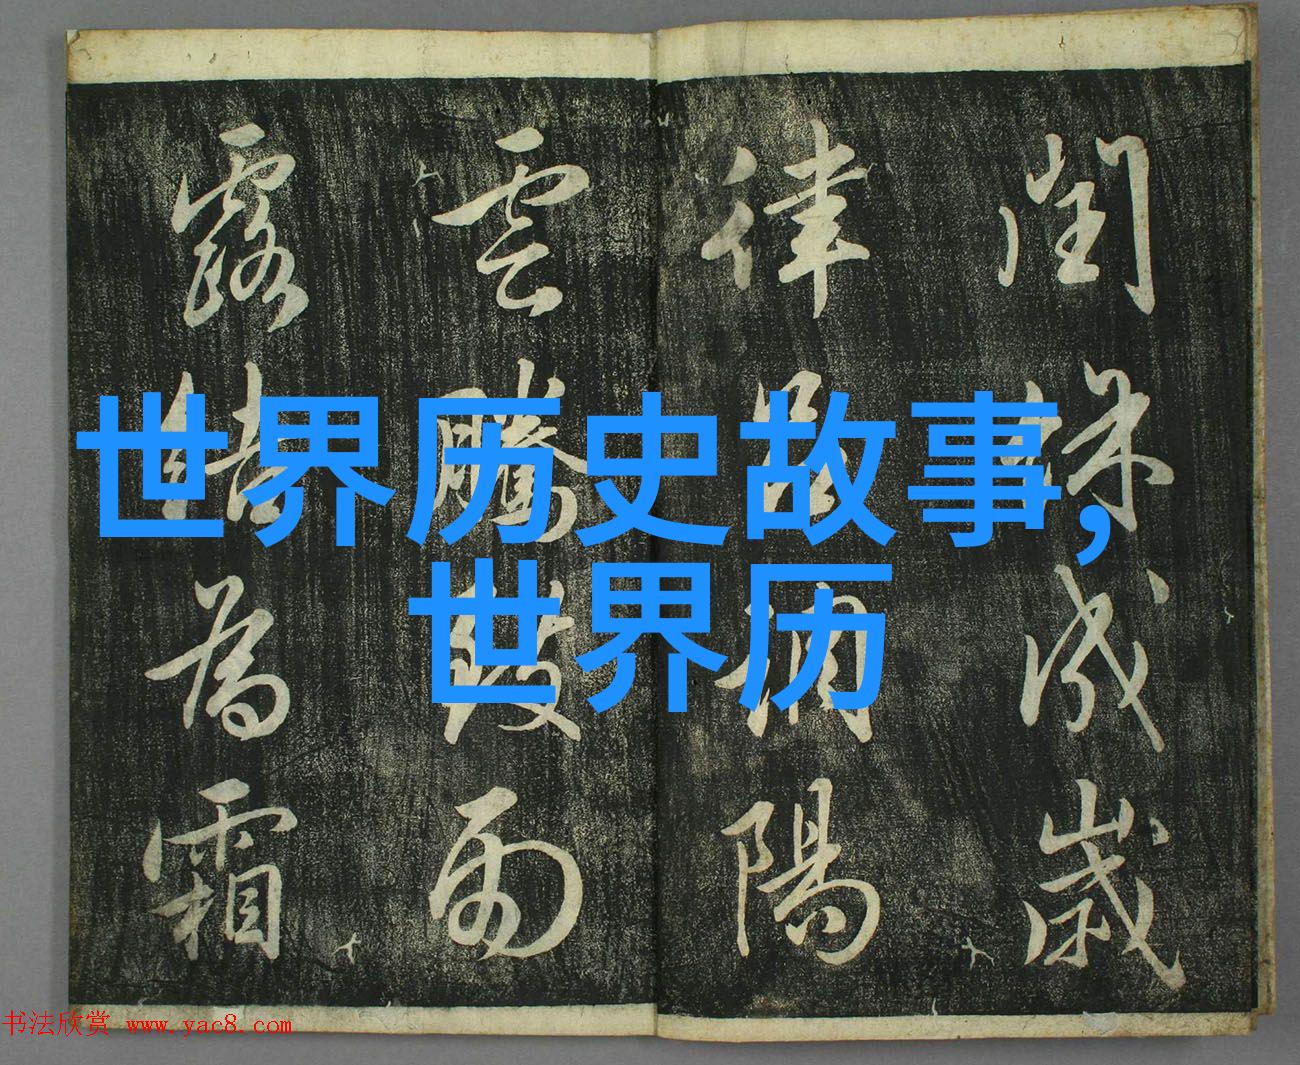 閏餘成歲
律呂調陽
雲騰致雨
露結為霜
世界历史故事,
世界历
书法欣赏 www.yac8.com